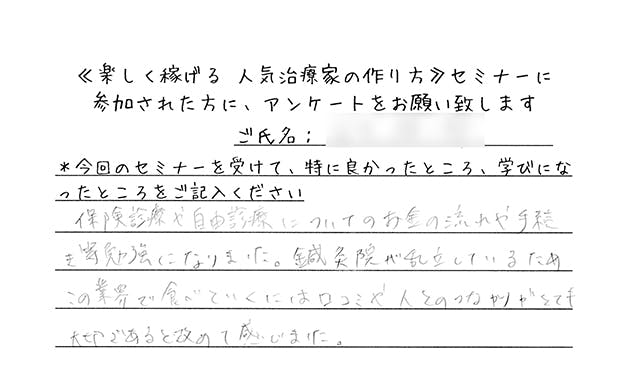 ≪楽しく稼げる 人気治療家の作り方≫セミナーに
参加された方に、アンケートをお願い致します
ご氏名：
*今回のセミナーを受けて、特に良かったところ、学びにな
ったところをご記入ください
保険診療や自由診療についてのお金の流れや手続
き等勉強になりました。鍼灸院が乱立しているため
この業界で食べていくには口コミや人とのつながりがとても
大切であると改めて感じました。